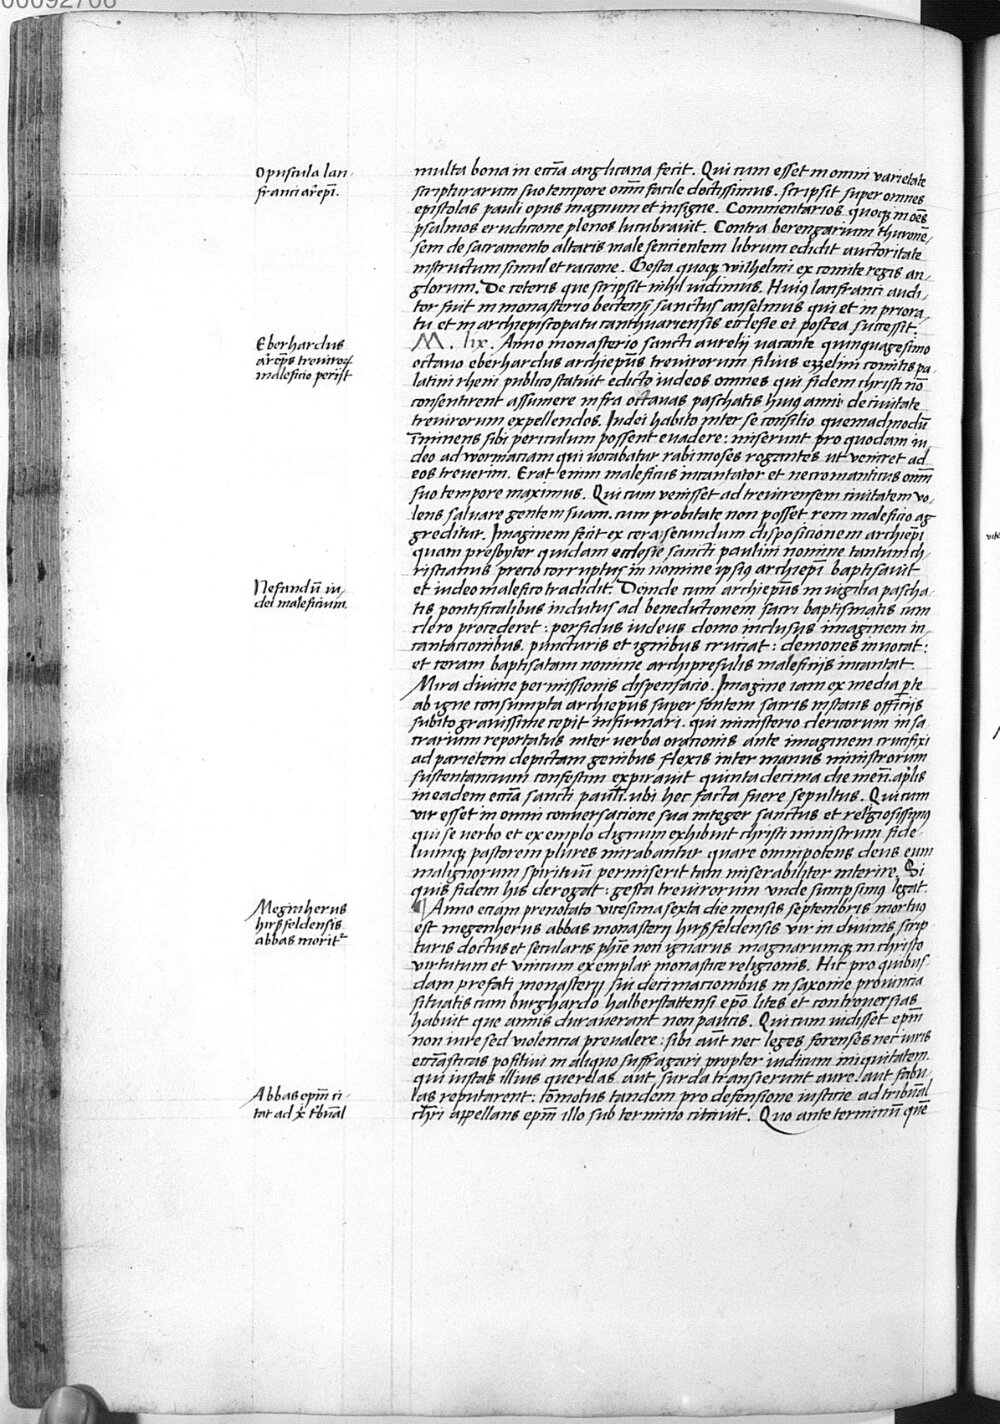 00092706
Opuscula lan-
franci arepi.
multa bona in eccia anglicana fecit. Qui cum esset in omni varietate
scripturarum suo tempore omni facile doctissimus. scripsit super omnes
epistolas pauli opus magnum et insigne. Commentarios quoq in oes
psalmos erudicione plenos lucubravit. Contra berengarium thurone-
sem de sacramento altaris male sencientem librum edidit auctoritate
instructum simul et racione. Gesta quoq wilhelmi ex comite regis an-
glorum. De ceteris que scripsit nihil uidimus. Huiq lanfranci audi-
tor fuit in monasterio beccensi sanctus anselmus qui et in priora-
tu et in archiepiscopatu canthuariensis ecclesie ei postea successit.
Eberhardus
areps treuiror
maleficio perijt
M. lix. Anno monasterio sancti aurelij uacante quinquagesimo
octauo eberhardus archiepus treuirorum filius ezzelini comitis pa-
latini rheni publico statuit edicto iudeos omnes qui fidem christi no
consentirent assumere infra octauas paschatis huiq anni de ciuitate
treuirorum expellendos. Iudei habito inter se consilio quemadmodu
iminens sibi periculum possent euadere: miserunt pro quodam iu-
deo ad wormaciam qui uocabatur rabi moses rogantes ut veniret ad
eos treuerim. Erat enim maleficus incantator et necromanticus omni
suo tempore maximus. Qui cum venisset ad treuirensem ciuitatem vo-
lens saluare gentem suam. cum probitate non posset rem maleficio ag
greditur. Imaginem fecit ex cera secundum disposicionem archiepi
quam presbyter quidam ecclesie sancti paulini nomine tantum ch-
ristianus precio corruptus in nomine ipsiq archiepi baptisauit
Nefandu iu-
dei maleficium.
et iudeo malefico tradidit. Deinde cum archiepus in uigilia pascha-
tis pontificalibus indutus ad benedictionem sacri baptismatis cum
clero procederet: perfidus iudeus domo inclusus imaginem in-
cantacionibus. puncturis et ignibus cruciat: demones inuocat:
et ceram baptisatam nomine archipresulis maleficijs incantat.
Mira diuine permissionis dispensacio. Imagine iam ex media pte
ab igne consumpta archiepus super fontem sacris instans officijs
subito grauissime cepit infirmari. qui ministerio clericorum in sa-
crarium reportatus inter uerba orationis ante imaginem crucifixi
ad parietem depictam genibus flexis inter manus ministrorum
sustentancium confestim expirauit quinta decima die men. aplis
in eadem eccia sancti pauli. ubi hec facta fuere sepultus. Qui cum
vir esset in omni conuersacione sua integer sanctus et religiosissimq
qui se uerbo et exemplo dignum exhibuit christi ministrum fide-
liumq pastorem plures mirabantur quare omnipotens deus eum
malignorum spirituu permiserit tam miserabiliter interire. Si
quis fidem his derogat: gesta treuirorum unde sumpsimq legat.
Meginherus
hirsfeldensis
abbas morit
Anno eciam prenotato vicesima sexta die mensis septembris mortuq
est megenherus abbas monasterij hirsfeldensis vir in diuinis scrip
turis doctus et secularis phie non ignarus magnarumq in christo
virtutum et vnicum exemplar monastice religionis. Hic pro quibus
dam prefati monasterij sui decimacionibus in saxonie prouincia
situatis cum burghardo halberstattensi epo lites et controuersias
habuit que annis durauerant non paucis. Qui cum uidisset epm
non iure sed violencia preualere: sibi aut nec leges forenses nec iuris
ecciastici positiui in aliquo suffragari propter iudicum iniquitatem.
qui iustas illius querelas aut surda transierunt aure. aut fabu-
Abbas epm ci-
tat ad x tbunal
las reputarent: comotus tandem pro defensione iusticie ad tribunal
chri appellans epm illo sub termino citauit. Quo ante terminu que